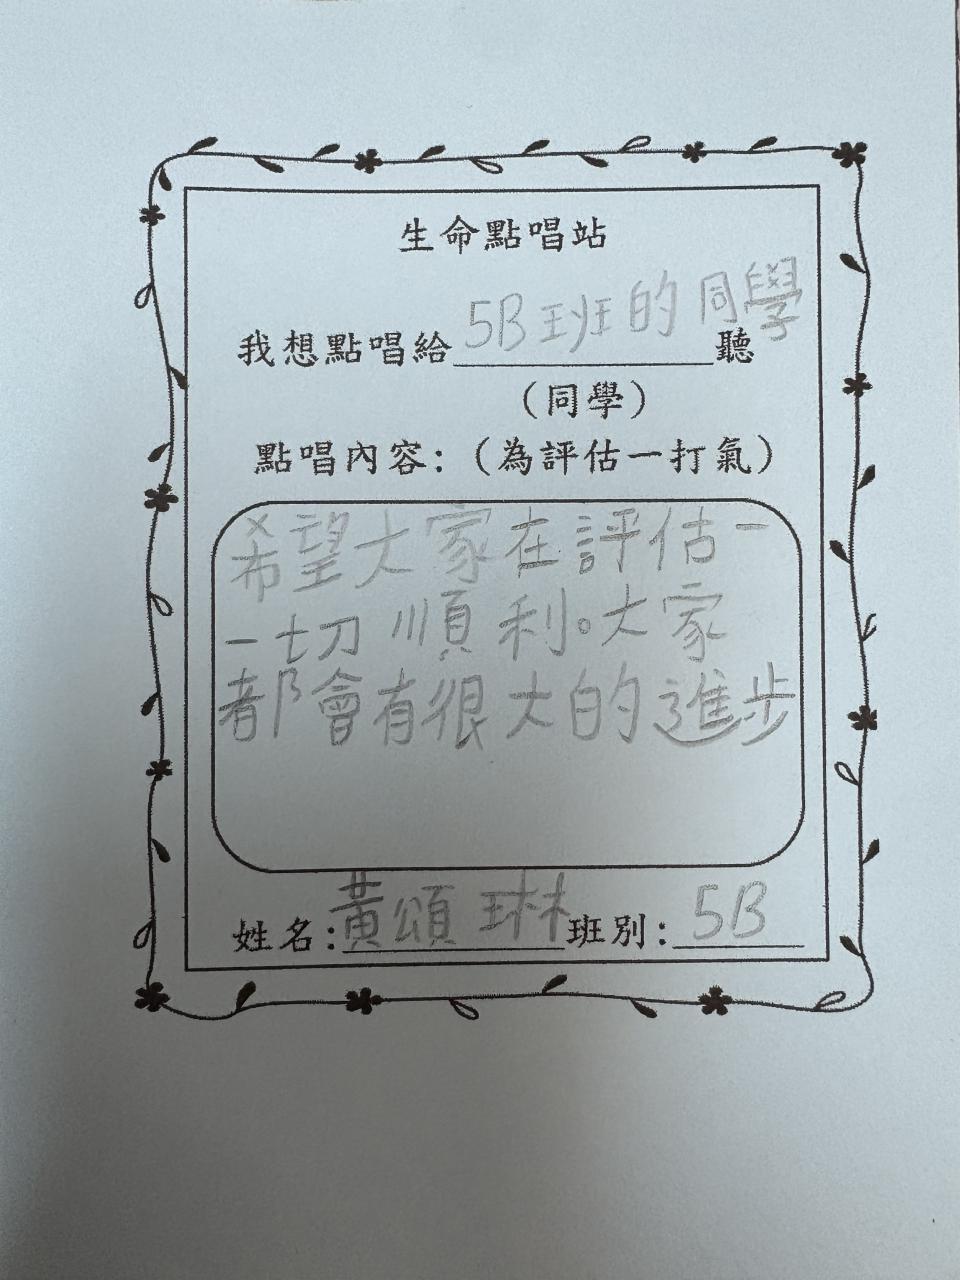 生命點唱站
我想點唱給5B班的同學聽
(同學)
點唱內容:(為評估一打氣)
希望大家在評估一
一切順利。大家
都會有很大的進步
姓名:黃頌琳 班別:5B